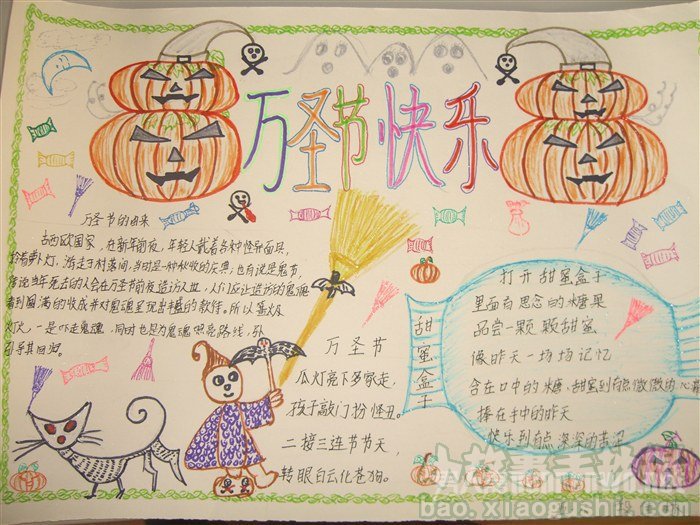 万圣节快乐
万圣节的由来
古西欧国家，在新年前夜，年轻人戴着各种怪异面具，
拎着萝卜灯，游走于村落间，当时是一种秋收的庆典；也有说是鬼节，
传说当年死去的人会在万圣节前夜造访人世，人们应让造访的鬼魂
看到圆满的收成并对鬼魂呈现丰盛的款待。所以篝火及
灯火，一是吓走鬼魂，同时也是为鬼魂照亮路线，
引导其回归。
万圣节
瓜灯亮下多家走，
孩子敲门扮怪丑。
二接三连节节天，
转眼白云化苍狗。
甜蜜盒子
打开甜蜜盒子
里面有思念的糖果
品尝一颗颗甜蜜
像昨天一场场记忆
含在口中的糖、甜蜜到有点微微的心
捧在手中的昨天
快乐到有点深深的苦涩
bao.xiaogushi.com